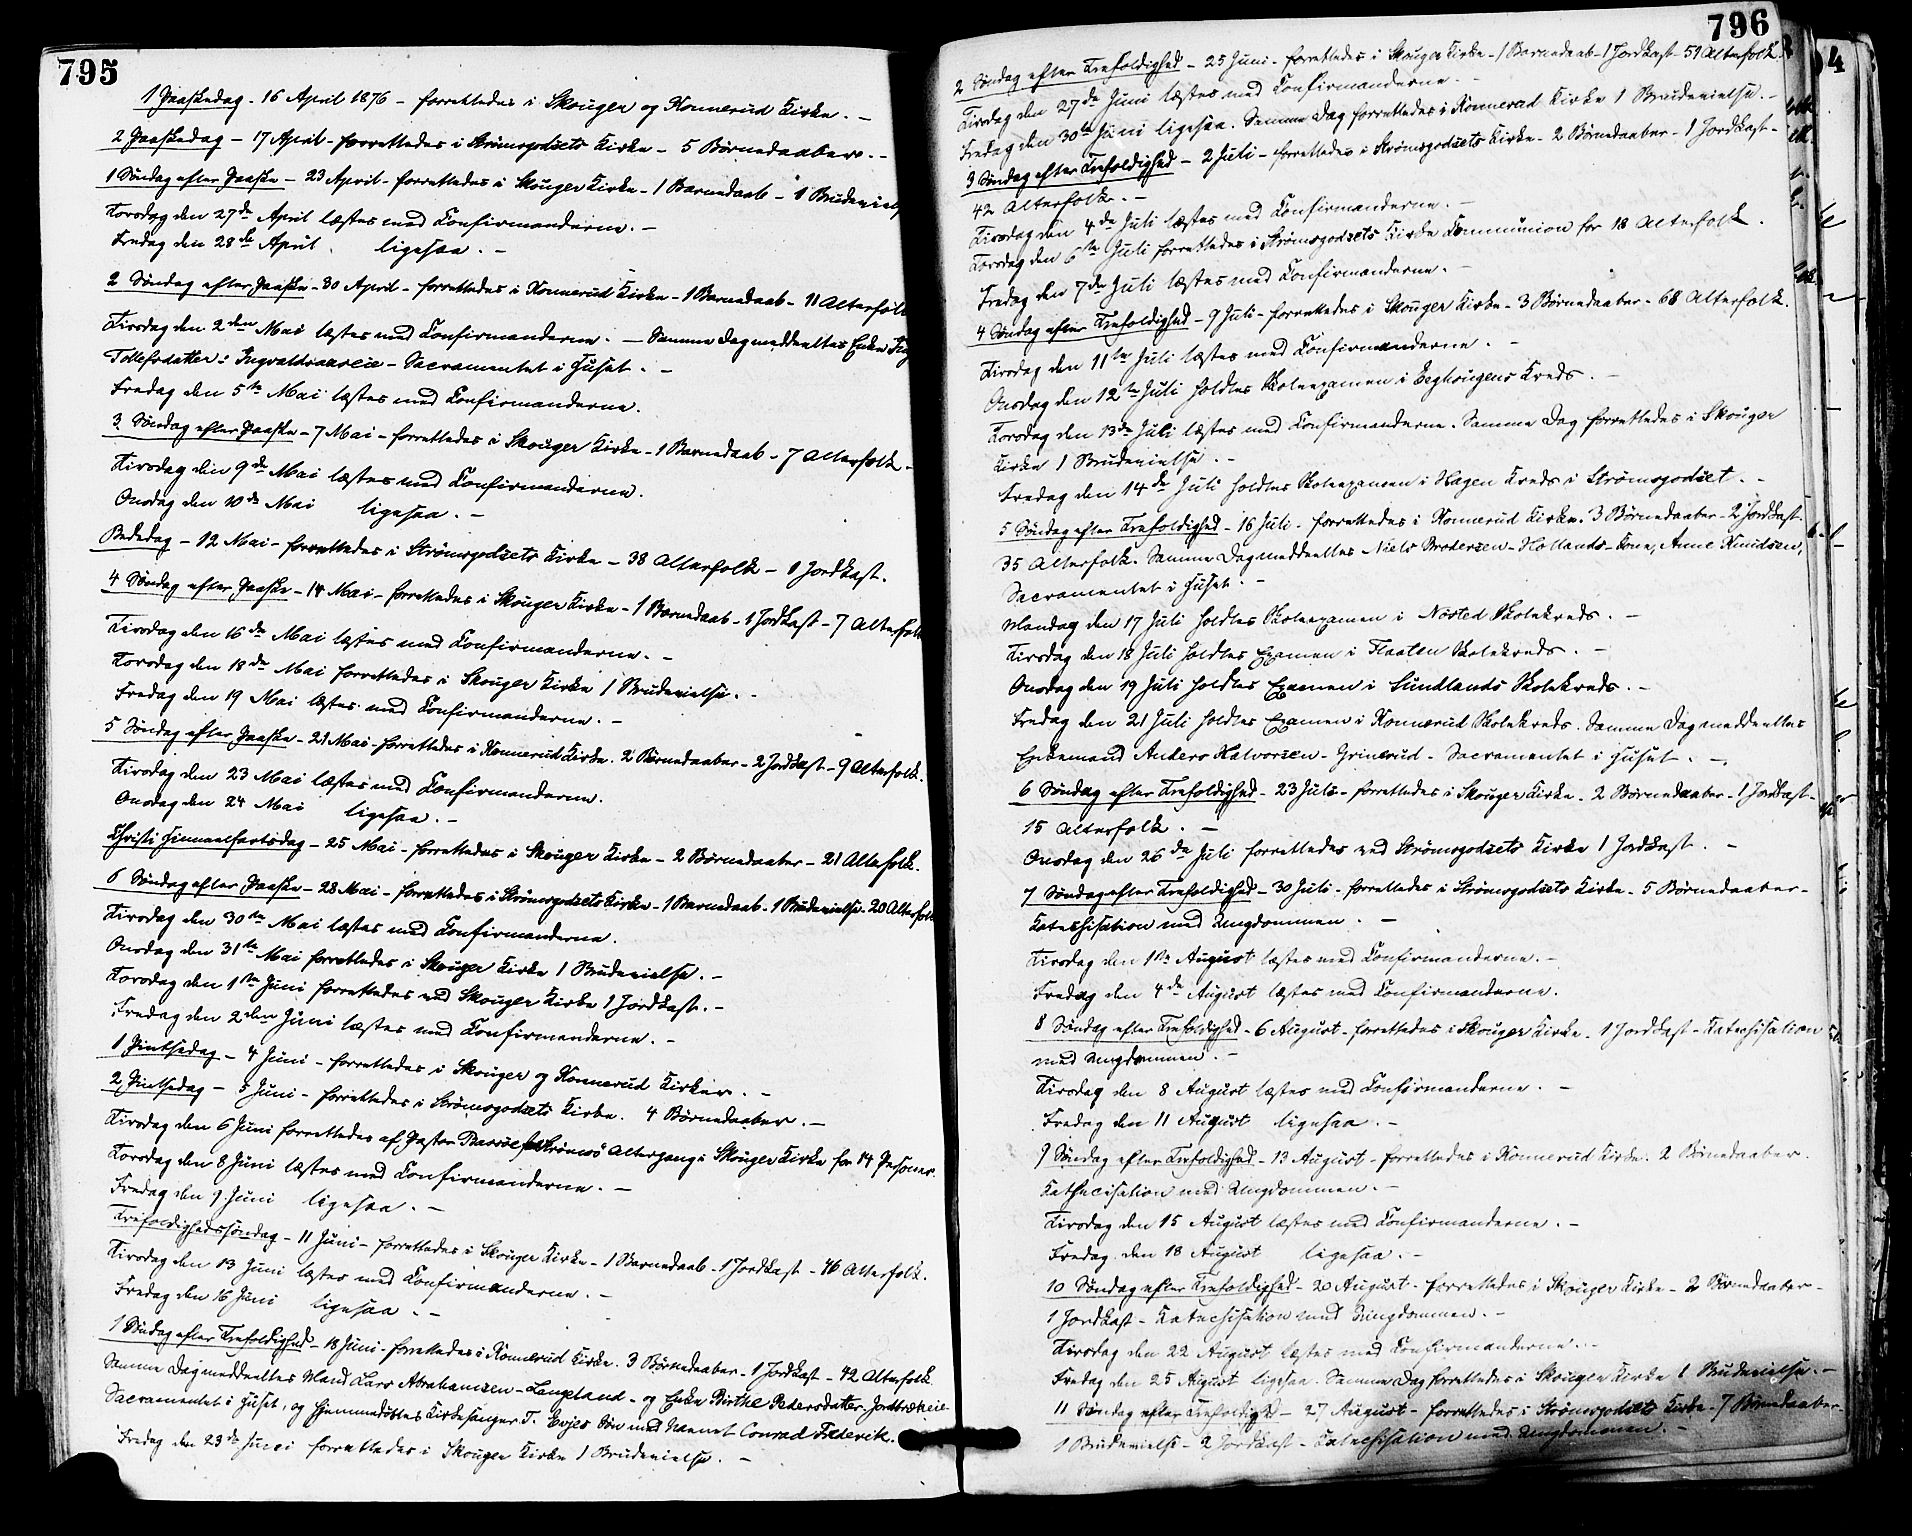 795
1 Paaskedag - 16 April 1876 - forrettedes i Skouger og Konnerud Kirke. -
2 Paaskedag - 17 April - forrettedes i Strømsgodsets Kirke - 5 Børnedaaber. -
1 Søndag efter Paaske - 23 April - forrettedes i Skouger Kirke - 1 Barnedaab - 1 Brudeviels
Torsdag den 27de April læstes med Confirmanderne. -
Fredag den 28de April. ligesaa. -
2 Søndag efter Paaske - 30 April - forrettedes i Konnerud Kirke - 1 Barnedaab - 11 Alterfolk
Tirsdag den 2den Mai læstes med Confirmanderne. - Samme Dag meddeeltes Enke
Tollefsdatter: Ingvaldsaaseie - Sacramentet i Huset. -
Fredag den 5te Mai læstes med Confirmanderne.
3. Søndag efter Paaske - 7 Mai - forrettedes i Skouger Kirke - 1 Barnedaab - 7 Alterfolk -
Tirsdag den 9de Mai læstes med Confirmanderne.
Onsdag den 10de Mai ligesaa. -
Bededag - 12 Mai - forrettedes i Strømsgodsets Kirke - 38 Alterfolk - 1 Jordkast.
4 Søndag efter Paaske - 14 Mai - forrettedes i Skouger Kirke - 1 Barnedaab - 1 Jordkast - 7 Alterfolk
Tirsdag den 16de Mai læstes med Confirmanderne. -
Torsdag den 18de Mai forrettedes i Skouger Kirke 1 Brudevielse. -
Fredag den 19 Mai læstes med Confirmanderne. -
5 Søndag efter Paaske - 21 Mai - forrettedes i Konnerud Kirke. 2 Børnedaaber - 2 Jordkast - 9 Alterfolk.
Tirsdag den 23 Mai læstes med Confirmanderne.
Onsdag den 24 Mai ligesaa. -
Christi Himmelfartsdag - 25 Mai - forrettedes i Skouger Kirke - 2 Børnedaaber - 21 Alterfolk.
6 Søndag efter Paaske - 28 Mai - forrettedes i Strømsgodsets Kirke - 1 Barnedaab - 1 Brudevielse - 20 Alterfolk
Tirsdag den 30te Mai læstes med Confirmanderne.
Onsdag den 31te Mai forrettedes i Skouger Kirke 1 Brudevielse. -
Torsdag den 1ste Juni forrettedes ved Skouger Kirke 1 Jordkast. -
Fredag den 2den Juni læstes med Confirmanderne. -
1 Pintsedag - 4 Juni - forrettedes i Skouger og Konnerud Kirker. -
2 Pintsedag - 5 Juni - forrettedes i Strømsgodsets Kirke. 4 Børnedaaber. -
Tirsdag den 6 Juni forrettedes af Pastor Strømsø Altergang i Skouger Kirke for 14 Personer.
Torsdag den 8 Juni læstes med Confirmanderne. -
Fredag den 9. Juni ligesaa. -
Trefoldighedssøndag - 11 Juni - forrettedes i Skouger Kirke - 1 Barnedaab - 1 Jordkast - 46 Alterfolk.
Tirsdag den 13 Juni læstes med Confirmanderne. -
Fredag den 16 Juni ligesaa. -
1 Søndag efter Trefoldighed - 18 Juni - forrettedes i Konnerud Kirke. 3 Børnedaaber - 1 Jordkast - 42 Alterfolk
Samme Dag meddeeltes Mand Lars Abrahamsen - Langeland - og Enke Birthe Pedersdatter - Jordbrækeie
Sacramentet i Huset, og hjemmedøbtes Kirkesanger T. Evjes Søn med Navnet Conrad Frederik.
Fredag den 23de Juni forrettedes i Skouger Kirke 1 Brudevielse. -
796
2 Søndag efter Trefoldighed - 25 Juni - forrettedes i Skouger Kirke - 1 Barnedaab - 1 Jordkast - 59 Alterfolk.
Tirsdag den 27de Juni læstes med Confirmanderne. -
Fredag den 30te Juni ligesaa. Samme Dag forrettedes i Konnerud Kirke 1 Brudevielse. -
3 Søndag efter Trefoldighed - 2 Juli - forrettedes i Strømsgodsets Kirke - 2 Børnedaaber - 1 Jordkast -
42 Alterfolk. -
Tirsdag den 4de Juli læstes med Confirmanderne. -
Torsdag den 6te Juli forrettedes i Strømsgodsets Kirke Communion for 18 Alterfolk.
Fredag den 7de Juli læstes med Confirmanderne. -
4 Søndag efter Trefoldighed - 9 Juli - forrettedes i Skouger Kirke - 3 Børnedaaber - 68 Alterfolk.
Tirsdag den 11te Juli læstes med Confirmanderne. -
Onsdag den 12te Juli holdtes Skoleexamen i Eeghougens Kreds. -
Torsdag den 13de Juli læstes med Confirmanderne. Samme Dag forrettedes i Skouger
Kirke 1 Brudevielse. -
Fredag den 14de Juli holdtes Skoleexamen i Hagen Kreds i Strømsgodset. -
5 Søndag efter Trefoldighed - 16 Juli - forrettedes i Konnerud Kirke. 3 Børnedaaber - 2 Jordkast.
35 Alterfolk. Samme Dag meddeeltes Niels Brodersen - Hollands - Kone, Anne Knudsen,
Sacramentet i Huset. -
Mandag den 17 Juli holdtes Skoleexamen i Nøsted Skolekreds. -
Tirsdag den 18 Juli holdtes Examen i Flaaten Skolekreds. -
Onsdag den 19 Juli holdtes Examen i Sundlands Skolekreds. -
Fredag den 21 Juli holdtes Examen i Konnerud Skolekreds. Samme Dag meddeeltes
Enkemand Anders Halvorsen - Grinerud - Sacramentet i Huset. -
6 Søndag efter Trefoldighed - 23 Juli - forrettedes i Skouger Kirke - 2 Børnedaaber - 1 Jordkast -
15 Alterfolk. -
Onsdag den 26de Juli forrettedes ved Strømsgodsets Kirke 1 Jordkast. -
7 Søndag efter Trefoldighed - 30 Juli - forrettedes i Strømsgodsets Kirke - 5 Børnedaaber -
Katechisation med Ungdommen. -
Tirsdag den 1ste August læstes med Confirmanderne. -
Fredag den 4de August læstes med Confirmanderne.
8 Søndag efter Trefoldighed - 6 August - forrettedes i Skouger Kirke. 1 Jordkast - Katechisation
med Ungdommen. -
Tirsdag den 8 August læstes med Confirmanderne. -
Fredag den 11 August ligesaa. -
9 Søndag efter Trefoldighed - 13 August - forrettedes i Konnerud Kirke. 2 Børnedaaber.
Kathecisation med Ungdommen. -
Tirsdag den 15 August læstes med Confirmanderne. -
Fredag den 18 August ligesaa. -
10 Søndag efter Trefoldighed - 20 August - forrettedes i Skouger Kirke - 2 Børnedaaber -
1 Jordkast - Katechisation med Ungdommen. -
Tirsdag den 22 August læstes med Confirmanderne. -
Fredag den 25 August ligesaa. Samme Dag forrettedes i Skouger Kirke 1 Brudevielse. -
11 Søndag efter Trefoldighd - 27 August - forrettedes i Strømsgodsets Kirke - 7 Børnedaaber
1 Brudevielse - 2 Jordkast - Katechisation med Ungdommen. -